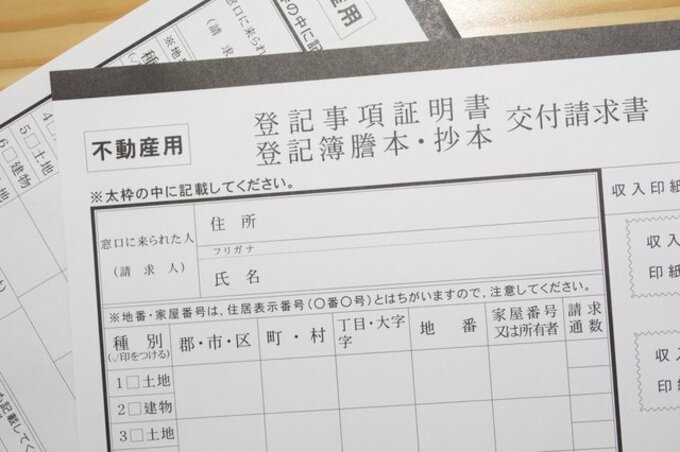 不動産用
登記事項証明書
登記簿謄本・抄本
交付請求書
※太枠の中に記載してください。
窓口に来られた人
(請求人)
住所
フリガナ
氏名
収入印紙
収入
印紙
収入
印紙
※地番・家屋番号は,住居表示番号(〇番〇号)とはちがいますので,注意してください。
種別
(✓印をつける)
郡・市・区
町・村
丁目・大字
字
地番
家屋番号
又は所有者
請求
通数
1□土地
2□建物
3□土地
用
の中に記
窓口に来られ
(請求
※地番
種
5□土地
6□建物
記載してく